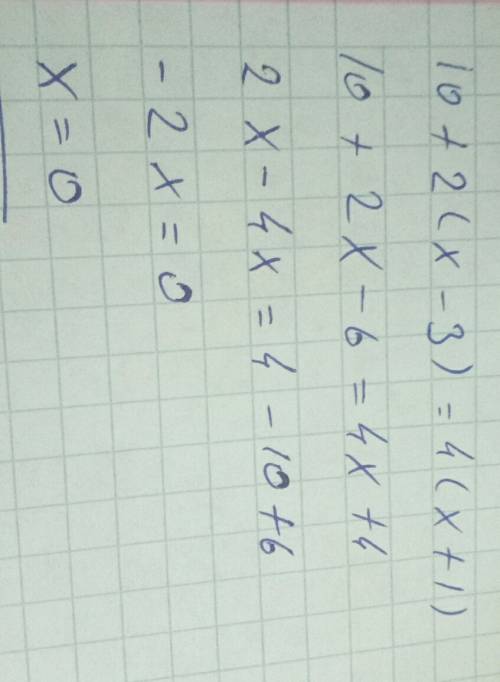 10 + 2(x - 3) = 4(x + 1)
10 + 2x - 6 = 4x + 4
2x - 4x = 4 - 10 + 6
- 2x = 0
x = 0